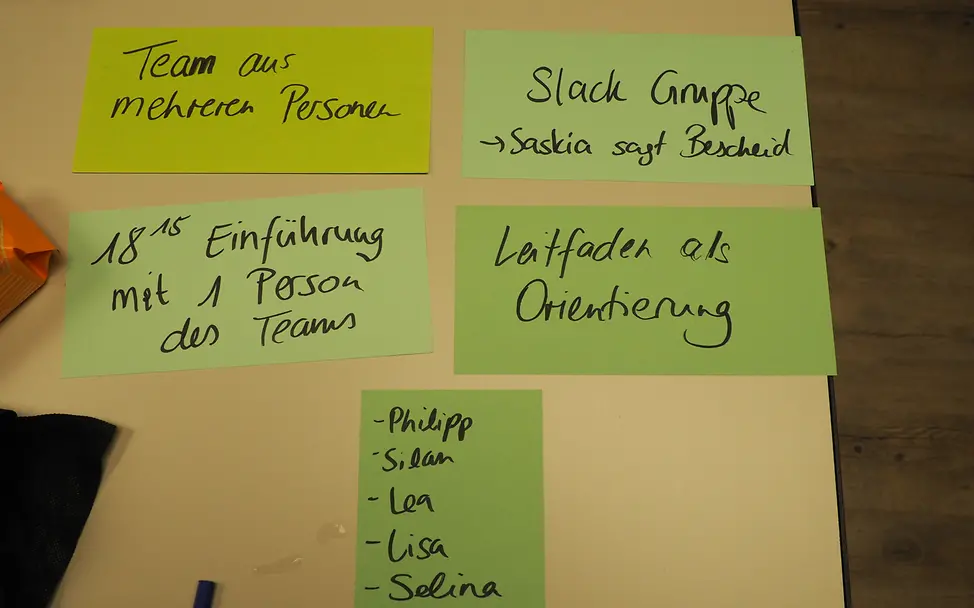 Team aus
mehreren Personen
Slack Gruppe
→Saskia sagt Bescheid
18¹⁵ Einführung
mit 1 Person
des Teams
Leitfaden als
Orientierung
-Philipp
-Silan
-Lea
-Lisa
-Selina